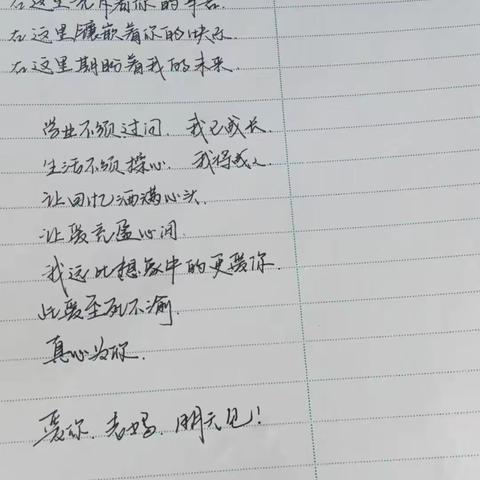 在这里充斥着你的牵石.
在这里镶嵌着你的快乐.
在这里期盼着我的未来.
学业不须过问. 我已成长.
生活不须操心. 我得成人.
让回忆洒满心头.
让爱充盈心间.
我远比想象中的更爱你.
此爱至死不渝.
真心为你.
爱你. 老妈. 明天见!